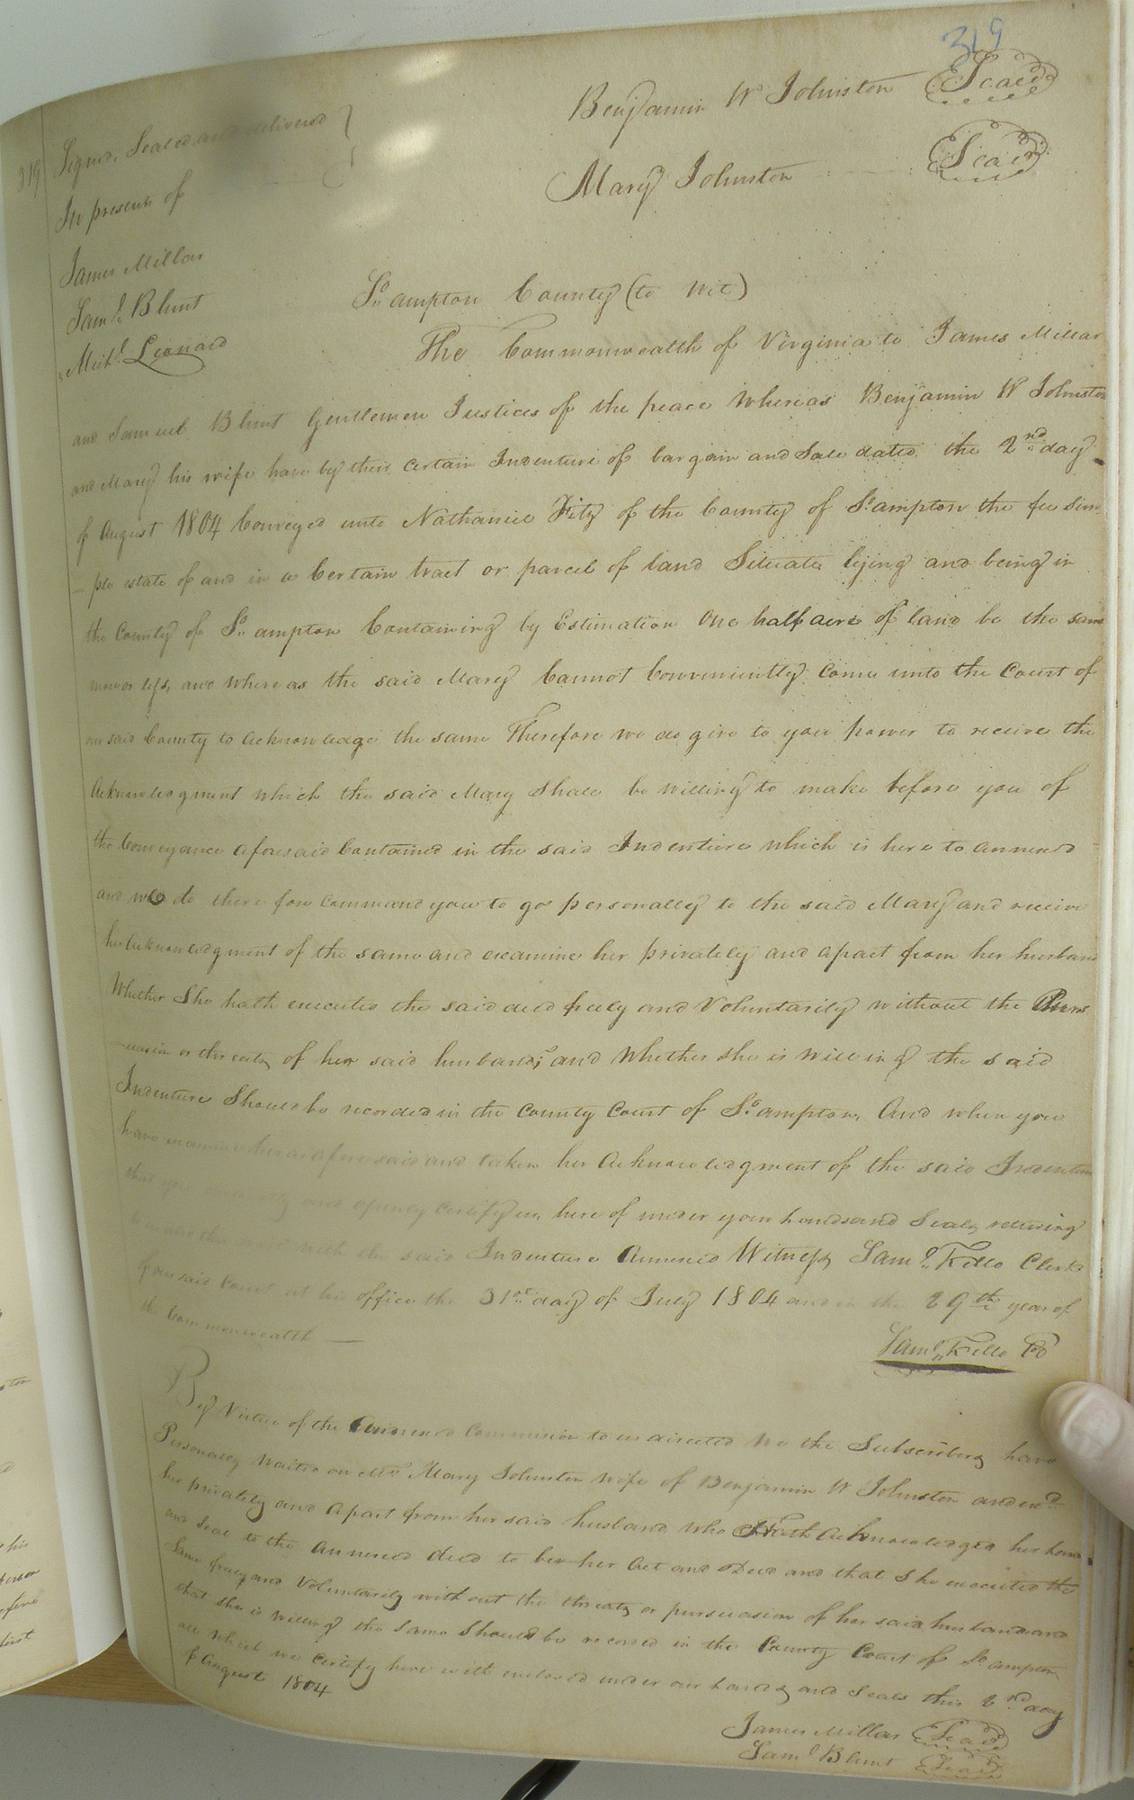 319
319
Signed, Sealed and delivered
In presence of
James Millar
Saml. Blunt
Michl. Leonard
Benjamin W Johnston Seal
Mary Johnston Seal
So.ampton County (to wit)
The Commonwealth of Virginia to James Millar
and Samuel Blunt Gentlemen Justices of the peace Whereas Benjamin W Johnston
and Mary his wife have by their certain Indenture of bargain and Sale dated the 2nd day
of August 1804 Conveyed unto Nathaniel Fity of the County of So.ampton the fee sim
ple estate of and in a Certain tract or parcel of land Situate lying and being in
the County of So.ampton Containing by Estimation One half acre of land be the same
more or less, and whereas the said Mary Cannot Conveniently come unto the Court of
our said County to acknowledge the same Therefore we do give to you power to receive the
Acknowledgment which the said Mary Shall be willing to make before you of
the Conveyance aforesaid Contained in the said Indenture which is here to annexed
and we do there fore command you to go personally to the said Mary and receive
her Acknowledgment of the same and examine her privately and apart from her husband
Whether She hath executed the said deed freely and Voluntarily without the Purs
uasion or threats of her said husband, and Whether she is willing the said
Indenture Should be recorded in the County Court of So.ampton, And when you
have examined her as aforesaid and taken her Acknowledgment of the said Indenture
that you and openly certify us here of under your hands and Seals sending
with the said Indenture Annexed Witness Saml. Kello Clerk
of our said Court at his office the 31st day of July 1804 and in the 29th year of
the Commonwealth —
Saml. Kello
By Virtue of the Annexed Commission to us directed We the Subscribers have
Personally waited on Mrs Mary Johnston wife of Benjamin W Johnston and exd.
her privately and apart from her said husband who Hath Acknowledged her hand
and Seal to the Annexed deed to be her Act and Deed and that She executed the
same freely and Voluntarily with out the threats or persuasion of her said husband and
that she is willing the Same Should be recored in the County Court of So.ampton
all which we certify here with enclosed under our hands and Seals this 2nd day
of August 1804
James Millar Seal
Saml. Blunt Seal